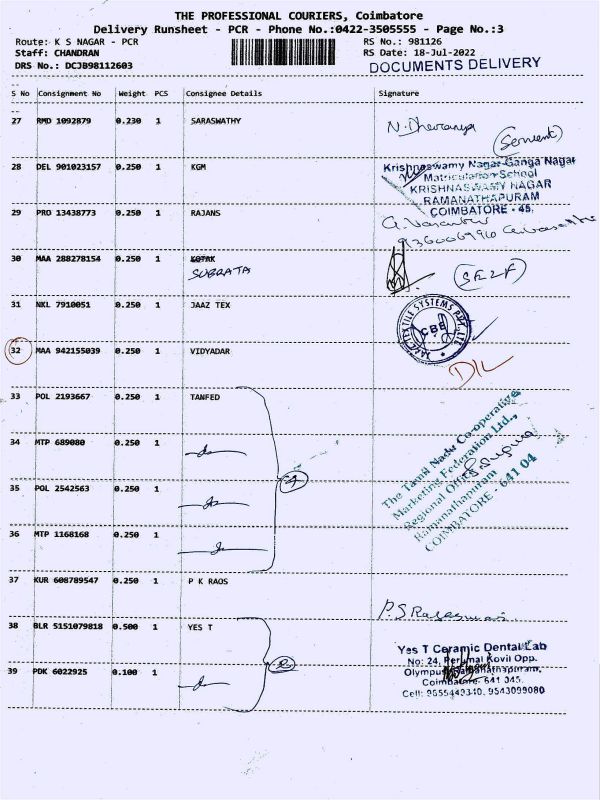 THE PROFESSIONAL COURIERS, Coimbatore
Delivery Runsheet - PCR - Phone No.:0422-3505555 - Page No.:3
Route: K S NAGAR - PCR
RS No.: 981126
Staff: CHANDRAN
RS Date: 18-Jul-2022
DRS No.: DCJB98112603
DOCUMENTS DELIVERY
S No Consignment No Weight PCS Consignee Details Signature
27 RMD 1092879 0.230 1 SARASWATHY
(Servent)
28 DEL 901023157 0.250 1 KGM
Krishnaswamy Nagar Ganga Nagar
Matriculation School
KRISHNASWAMY NAGAR
RAMANATHAPURAM
COIMBATORE - 45.
29 PRO 13438773 0.250 1 RAJANS
30 MAA 288278154 0.250 1
SUBRATA
(SELF)
31 NKL 7910051 0.250 1 JAAZ TEX
CBE
32 MAA 942155039 0.250 1 VIDYADAR
D/L
33 POL 2193667 0.250 1 TANFED
34 MTP 689080 0.250 1
35 POL 2542563 0.250 1
4
36 MTP 1168168 0.250 1
The Tamil Nadu Co-operative
Marketing Federation Ltd.,
Regional Office
Ramanathapuram
COIMBATORE - 641 04
37 KUR 608789547 0.250 1 P K RAOS
38 BLR 5151079818 0.500 1 YES T
2
39 PDK 6022925 0.100 1
Yes T Ceramic Dental Lab
No: 24, Perumal Kovil Opp.
Olympus, Ramanathapuram,
Coimbatore. 641 045.
Cell: 9655449340. 9543099080